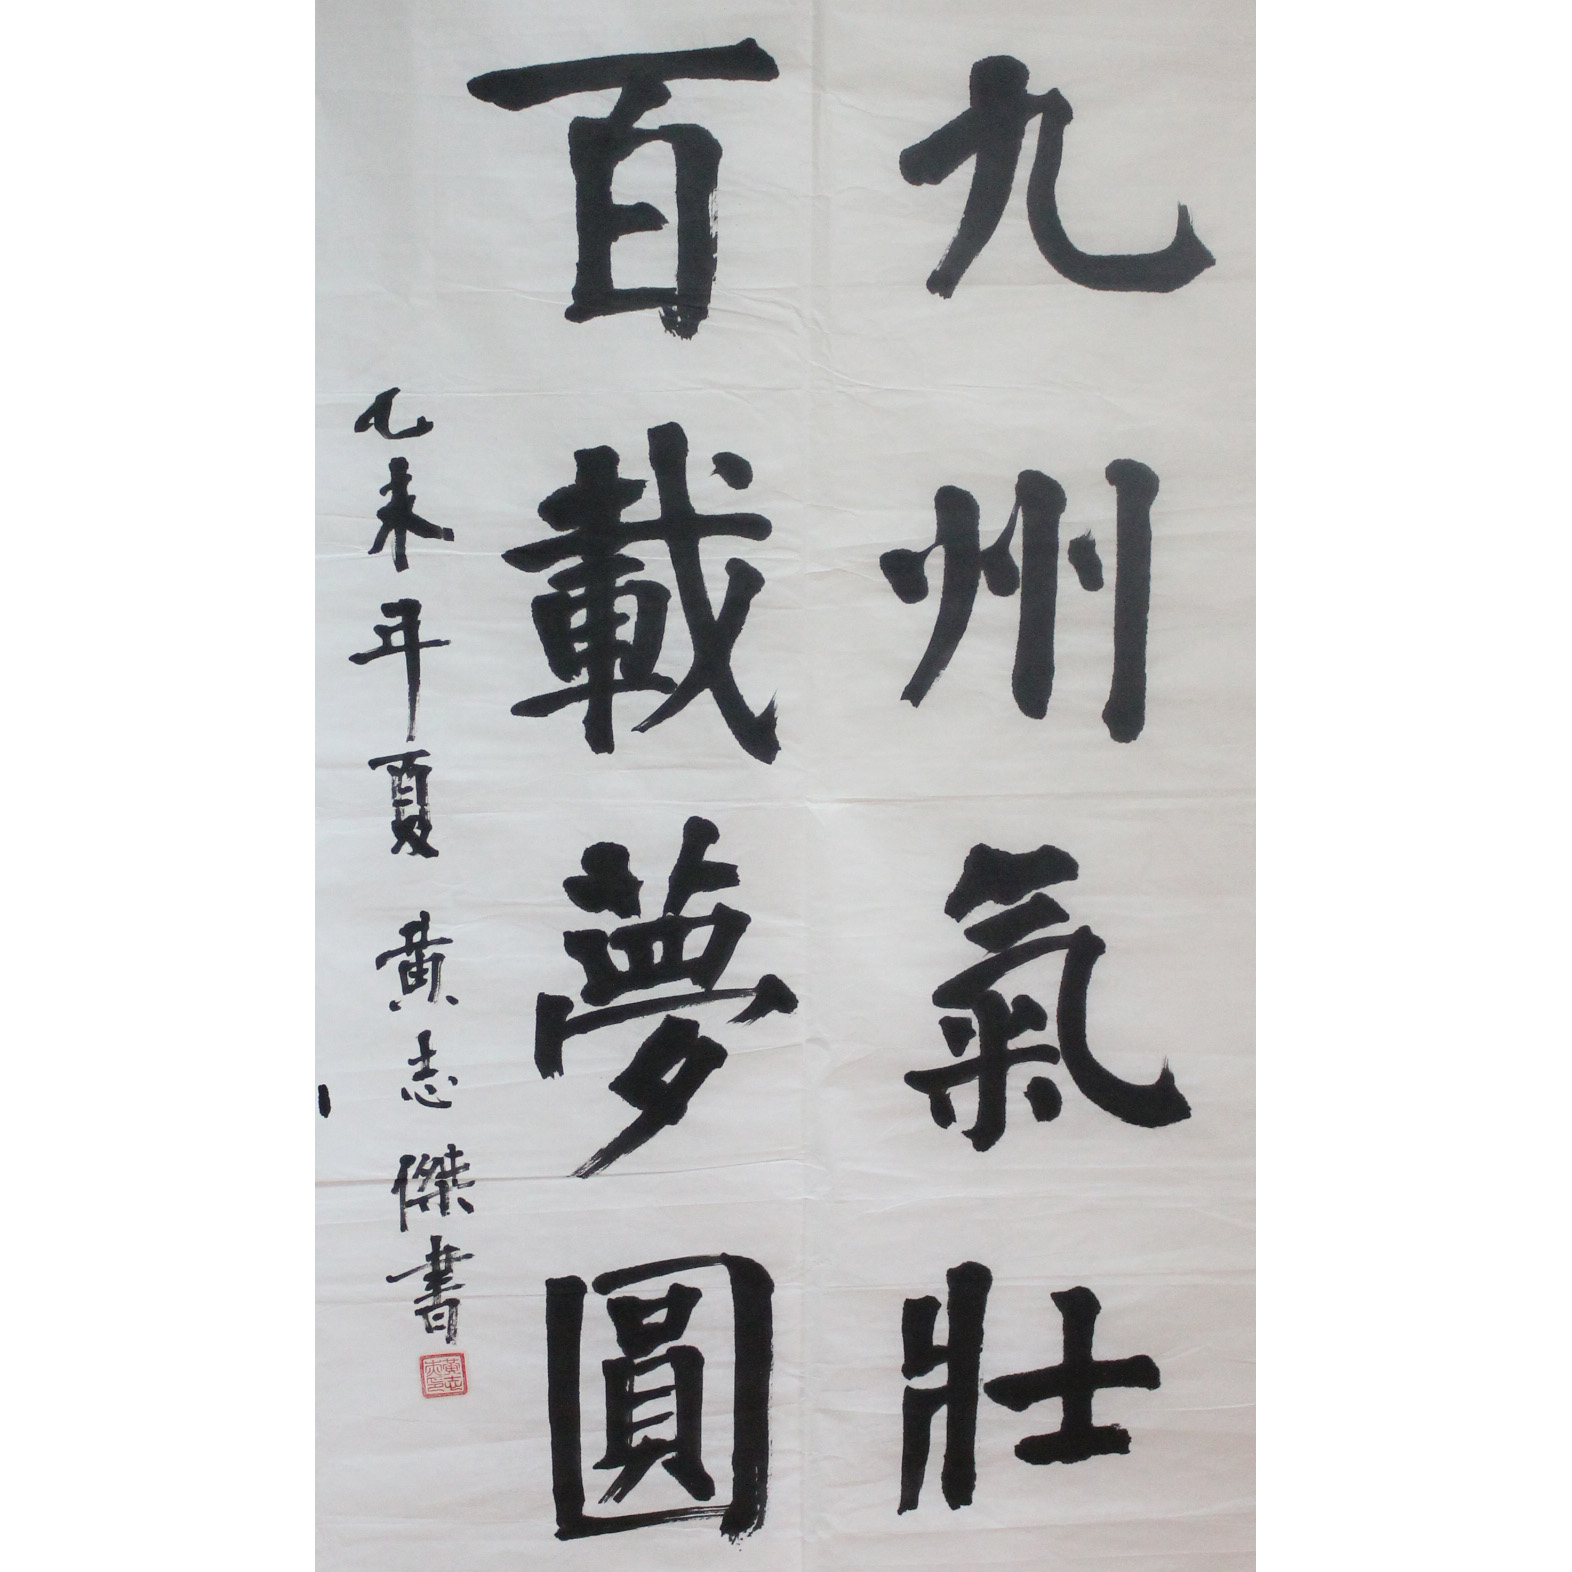 九州氣壯
百載夢圓
乙未年夏 黃志傑書